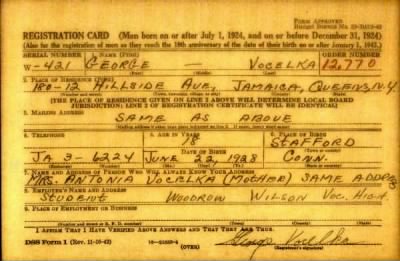 FORM APPROVED
REGISTRATION CARD (Men born on or after July 1, 1924, and on or before December 31, 1924)
(Also for the registration of men as they reach the 18th anniversary of the date of their birth on or after January 1, 1925.)
SERIAL NUMBER 1. NAME (Print) ORDER NUMBER
W-421 GEORGE — VOCELKA 12,770
(First) (Middle) (Last)
2. PLACE OF RESIDENCE (Print)
180-12 HILLSIDE AVE, JAMAICA, QUEENS, N.Y.
(Number and street) (Town, township, village, or city) (County) (State)
[THE PLACE OF RESIDENCE GIVEN ON LINE 2 ABOVE WILL DETERMINE LOCAL BOARD
JURISDICTION; LINE 2 OF REGISTRATION CERTIFICATE WILL BE IDENTICAL]
3. MAILING ADDRESS
SAME AS ABOVE
[Mailing address if other than place indicated on line 2. If same, insert word same]
4. TELEPHONE 5. AGE IN YEARS 6. PLACE OF BIRTH
18 STAFFORD
DATE OF BIRTH
JA 3-6224 JUNE 22, 1928 CONN.
7. NAME AND ADDRESS OF PERSON WHO WILL ALWAYS KNOW YOUR ADDRESS
MRS. ANTONIA VOCELKA (MOTHER) SAME ADDRESS
8. EMPLOYER'S NAME AND ADDRESS
STUDENT WOODROW WILSON VOC. HIGH
9. PLACE OF EMPLOYMENT OR BUSINESS
(Number and street or R. F. D. number) (Town) (County) (State)
I AFFIRM THAT I HAVE VERIFIED ABOVE ANSWERS AND THAT THEY ARE TRUE.
DSS Form 1 (OVER) George Vocelka
(Registrant's signature)